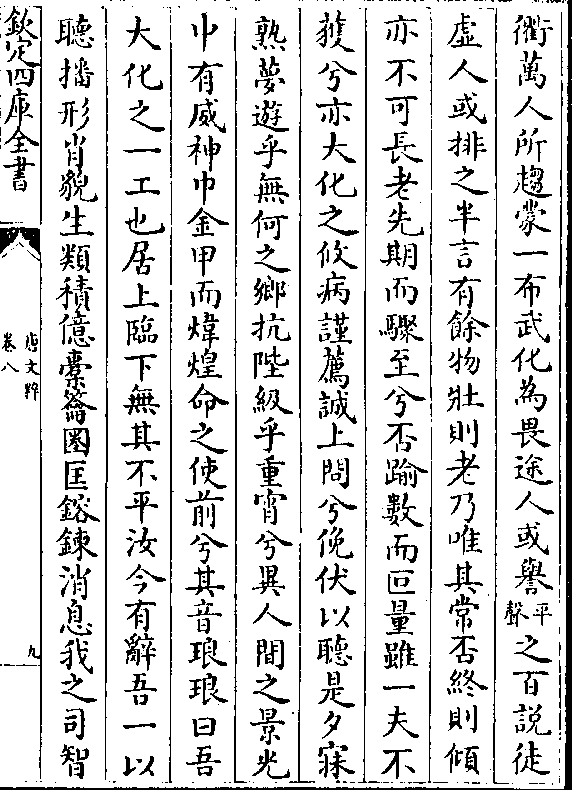 衢萬人所趨蒙一布武化為畏途人或譽平聲之百説徒
虛人或排之半言有餘物壯則老乃唯其常否終則傾
亦不可長老先期而驟至兮否踰數而叵量雖一夫不
獲兮亦大化之攸病謹薦誠上問兮俛伏以聽是夕寐
熟夢遊乎無何之鄉抗陛級乎重霄兮異人間之景光
中有威神巾金甲而煒煌命之使前兮其音琅琅曰吾
大化之一工也居上臨下無其不平汝今有辭吾一以
聽播形肖貌生類積億橐籥圈匡鎔鍊消息我之司智
欽定四庫全書
唐文粹
卷八
九